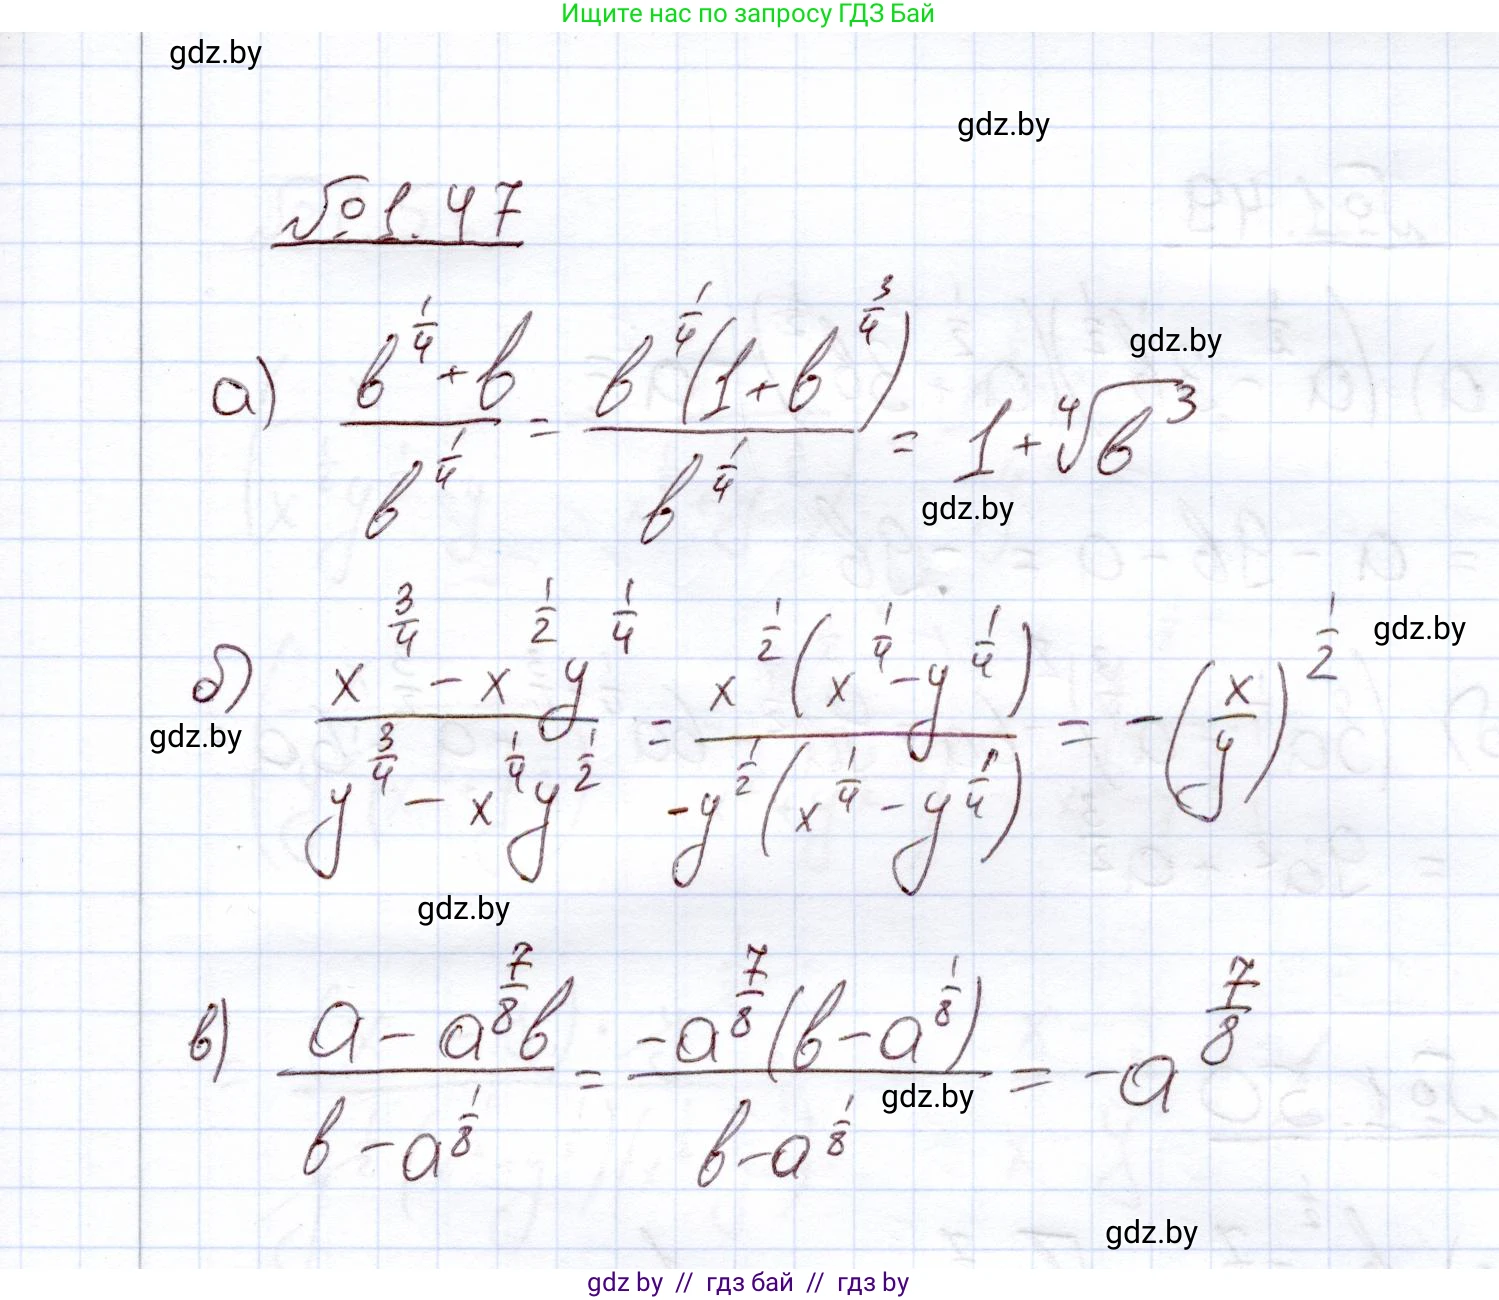 Ищите нас по запросу ГДЗ Бай
gdz.by
gdz.by
№1.47
а) (b^(1/4) + b) / b^(1/4) = b^(1/4)(1 + b^(3/4)) / b^(1/4) = 1 + ⁴√(b³)
gdz.by
gdz.by
б) (x^(3/4) − x^(1/2) y^(1/4)) / (y^(3/4) − x^(1/4) y^(1/2)) = x^(1/2)(x^(1/4) − y^(1/4)) / (−y^(1/2)(x^(1/4) − y^(1/4))) = −(x/y)^(1/2)
gdz.by
gdz.by
gdz.by
в) (a − a^(7/8) b) / (b − a^(1/8)) = −a^(7/8)(b − a^(1/8)) / (b − a^(1/8)) = −a^(7/8)
gdz.by
gdz.by
gdz.by // гдз бай // гдз by